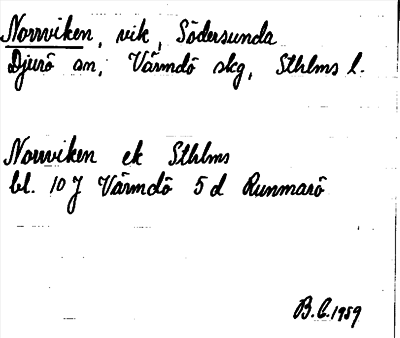 Norrviken, vik, Södersunda
Djurö sn, Värmdö skg, Sthlms l.
Norrviken ek Sthlms
bl. 10 J Värmdö 5 d Runmarö
B.C. 1959